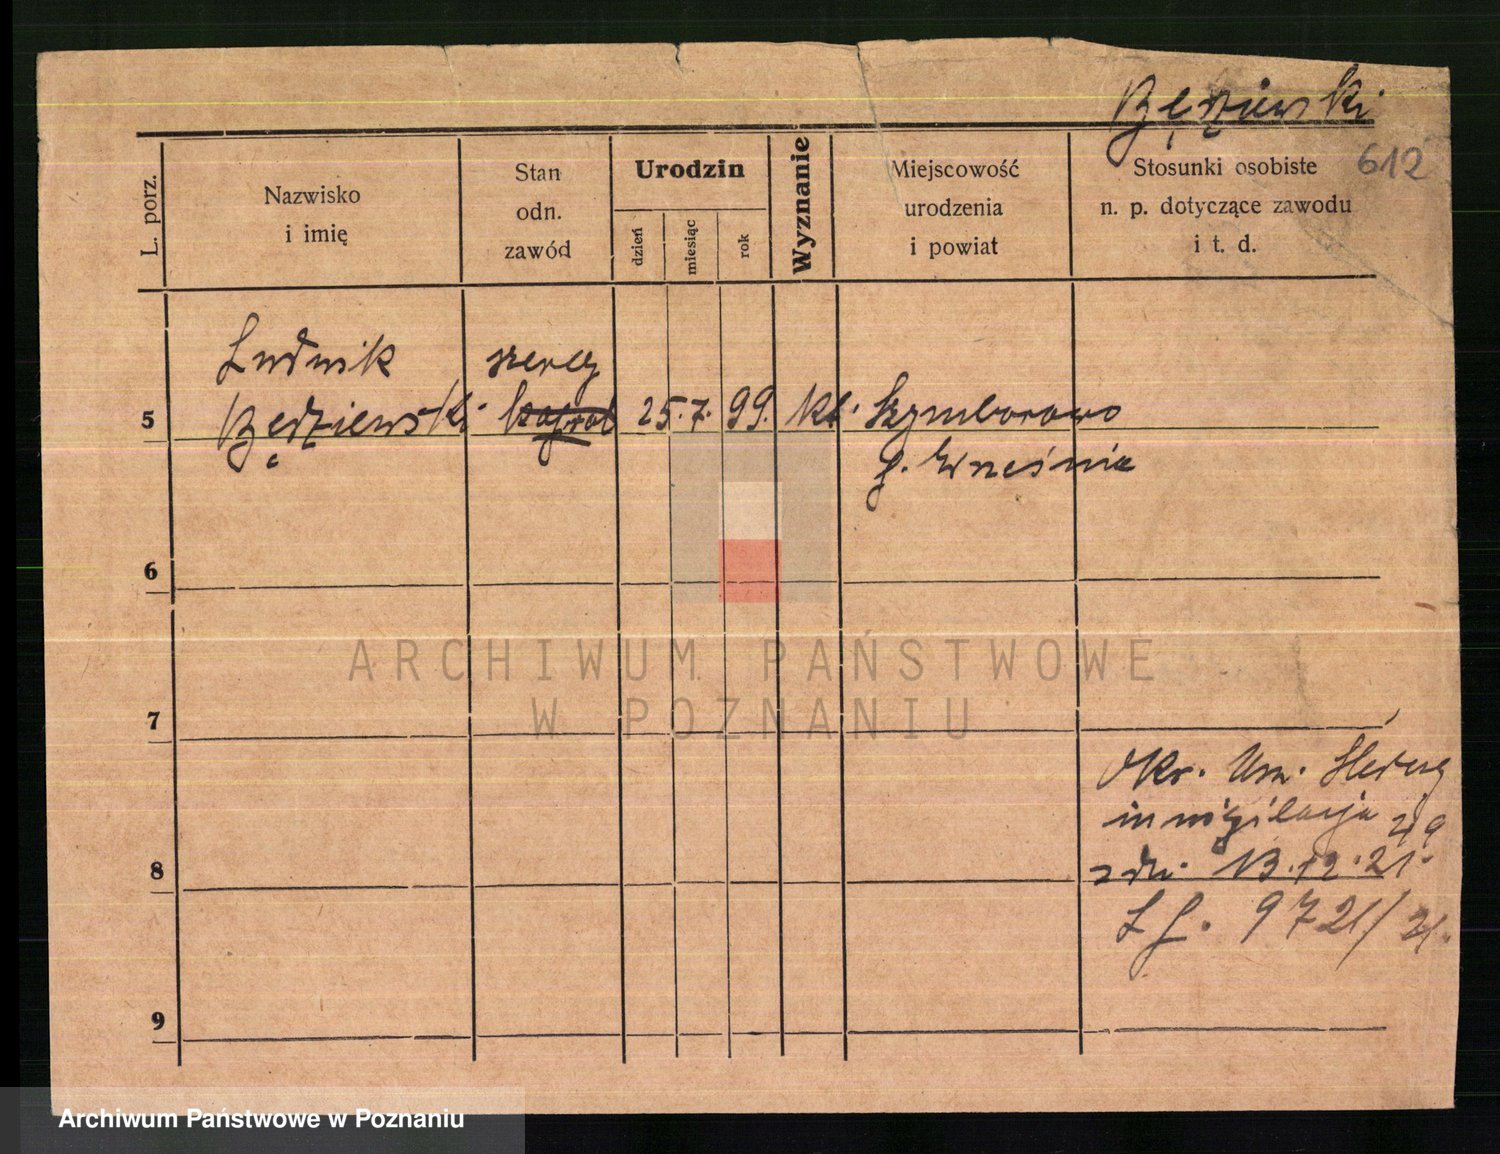 Będziewski
612
L. porz.
Nazwisko
i imię
Stan
odn.
zawód
Urodzin
dzień
miesiąc
rok
Wyznanie
Miejscowość
urodzenia
i powiat
Stosunki osobiste
n. p. dotyczące zawodu
i t. d.
Ludwik
Będziewski
szereg
kapral
25. 7. 99.
kt.
Szymborowo
p. Września
5
6
7
8
9
Okr. Urz.
inwigilacja
z dn. 13.12.21.
9721/21.
ARCHIWUM PAŃSTWOWE
W POZNANIU
Archiwum Państwowe w Poznaniu